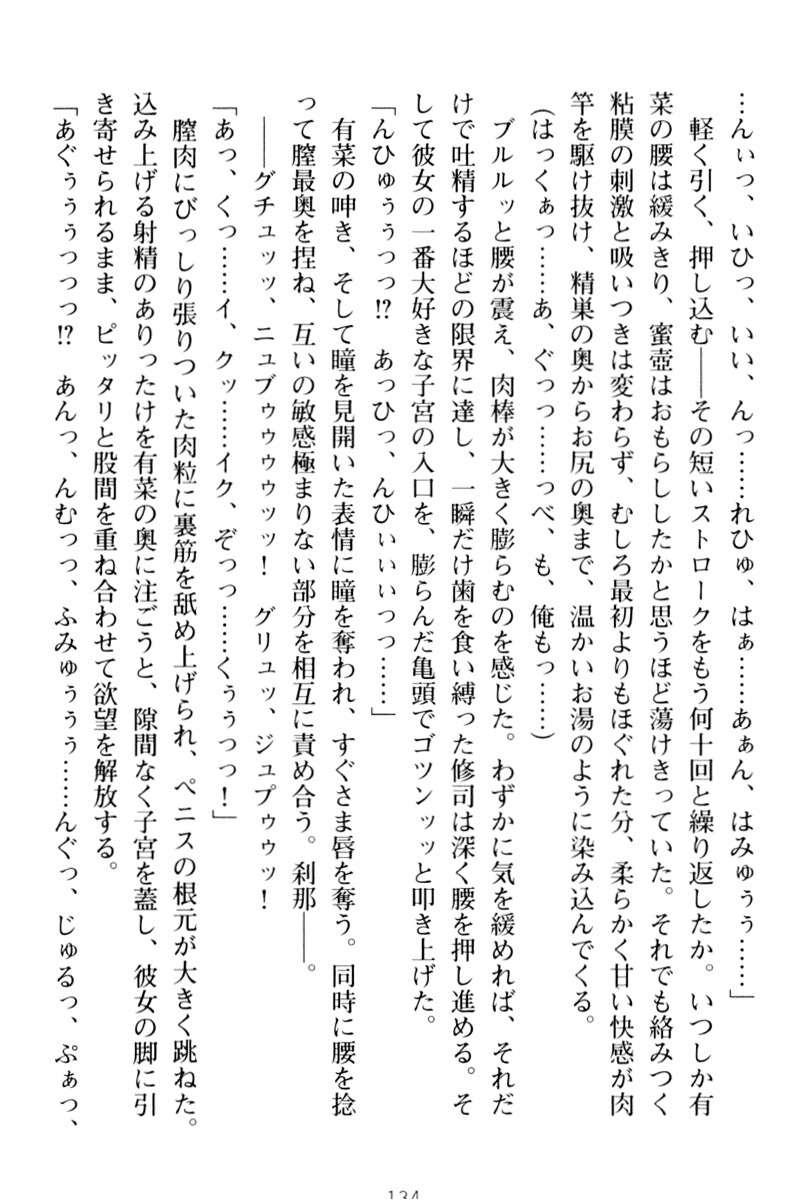 …んぃっ、いひっ、いい、んっ……れひゅ、はぁ……あぁん、はみゅぅぅ……」
軽く引く、押し込む――その短いストロークをもう何十回と繰り返したか。いつしか有
菜の腰は緩みきり、蜜壺はおもらししたかと思うほど蕩けきっていた。それでも絡みつく
粘膜の刺激と吸いつきは変わらず、むしろ最初よりもほぐれた分、柔らかく甘い快感が肉
竿を駆け抜け、精巣の奥からお尻の奥まで、温かいお湯のように染み込んでくる。
(はっくぁっ……あ、ぐっっ……っべ、も、俺もっ……)
ブルルッと腰が震え、肉棒が大きく膨らむのを感じた。わずかに気を緩めれば、それだ
けで吐精するほどの限界に達し、一瞬だけ歯を食い縛った修司は深く腰を押し進める。そ
して彼女の一番大好きな子宮の入口を、膨らんだ亀頭でゴツンッッと叩き上げた。
「んひゅぅぅっっ!? あっひっ、んひぃぃぃっっ……」
有菜の呻き、そして瞳を見開いた表情に瞳を奪われ、すぐさま唇を奪う。同時に腰を捻
って膣最奥を捏ね、互いの敏感極まりない部分を相互に責め合う。刹那――。
――グチュッッ、ニュブゥゥゥゥッッ! グリュッ、ジュプゥゥッ!
「あっ、くっ……イ、クッ……イク、ぞっっ……くぅぅっっ!」
膣肉にびっしり張りついた肉粒に裏筋を舐め上げられ、ペニスの根元が大きく跳ねた。
込み上げる射精のありったけを有菜の奥に注ごうと、隙間なく子宮を蓋し、彼女の脚に引
き寄せられるまま、ピッタリと股間を重ね合わせて欲望を解放する。
「あぐぅぅぅっっっ!? あんっ、んむっっ、ふみゅぅぅぅ……んぐっ、じゅるっ、ぷぁっ、
134